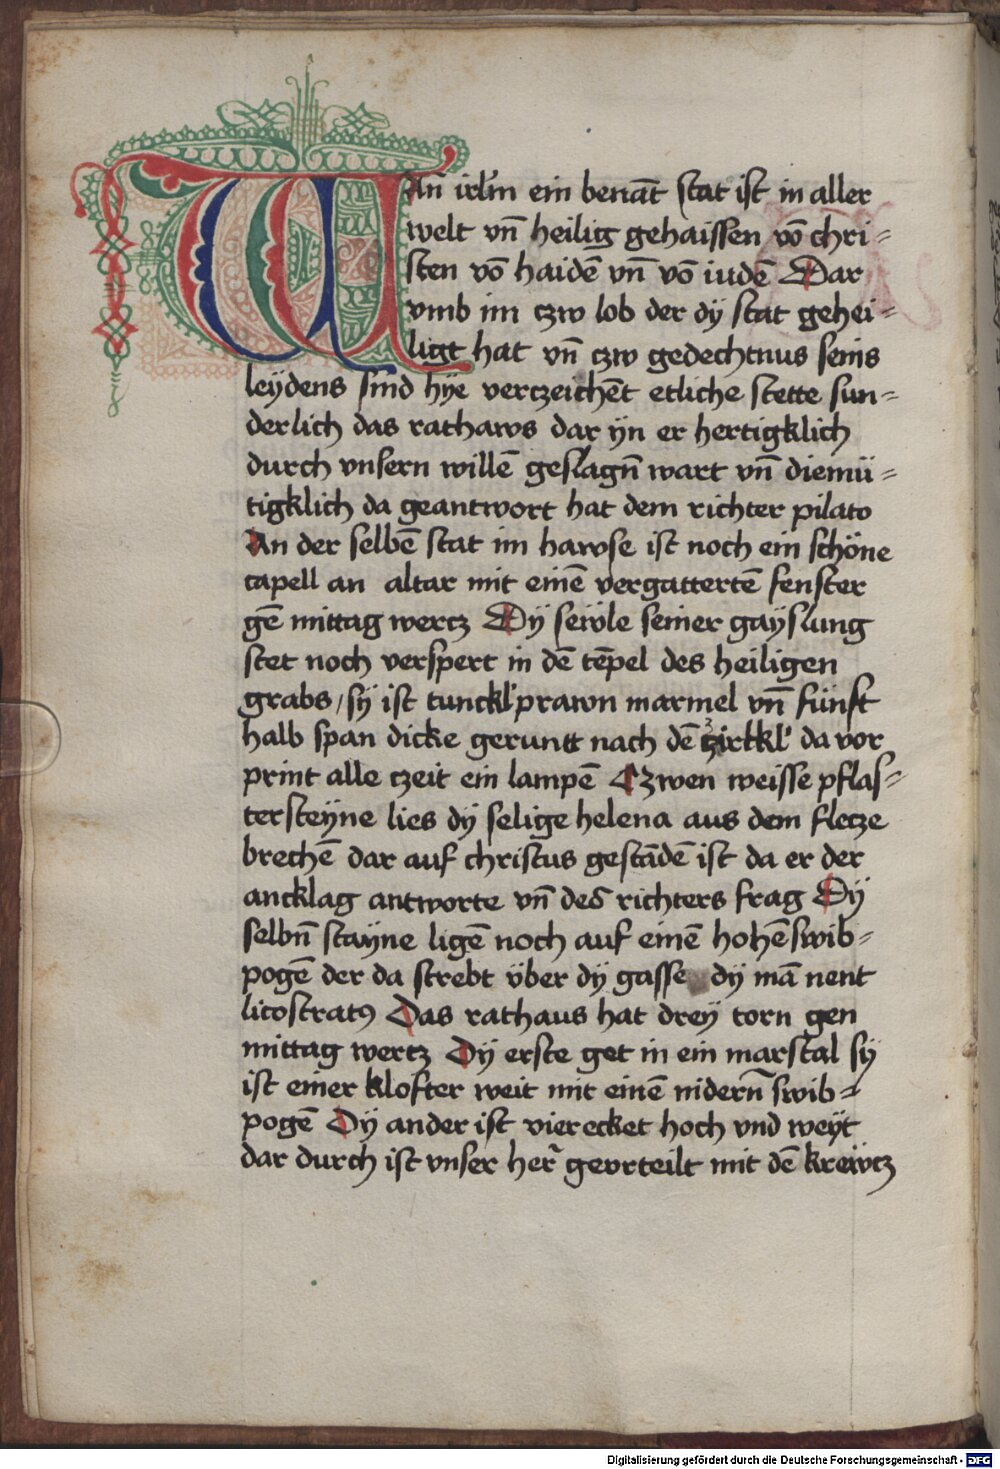 WAn̄ irl̄m ein benāt stat ist in aller
welt vn̄ heilig gehaissen vō chri=
sten vō haidē vn̄ vō iudē Dar
vmb im czw lob der dÿ stat gehei=
ligt hat vn̄ czw gedechtnus seins
leÿdens sind hÿe verczeichēt etliche stette sun=
derlich das rathaws dar ÿn er hertigklich
durch vnsern willē geslagn̄ wart vn̄ diemü=
tigklich da geantwort hat dem richter pilato
An der selbē stat im hawse ist noch ein schöne
capell an altar mit einē vergattertē fenster
gē mittag wercz Dÿ sewle seiner gaÿslung
stet noch verspert in dē tēpel des heiligen
grabs / sÿ ist tunckl' prawn marmel vn̄ fünft
halb span dicke geruntt nach dē zirkkl' da vor
print alle czeit ein lampē Czwen weisse pflas=
tersteÿne lies dÿ selige helena aus dem flecze
brechē dar auf christus gestādē ist da er der
ancklag antworte vn̄ des richters frag Dÿ
selbn̄ staÿne ligē noch auf einē hohē swib=
pogē der da strebt über dÿ gasse dÿ mā nent
licostratꝰ Das rathaus hat dreÿ torn gen
mittag wertz Dÿ erste get in ein marstal sÿ
ist einer klofter weit mit einē nidern̄ swib=
pogē Dÿ ander ist vierecket hoch vnd weÿt
dar durch ist vnser her̄ geurteilt mit dē krewcz
Digitalisierung gefördert durch die Deutsche Forschungsgemeinschaft - DFG